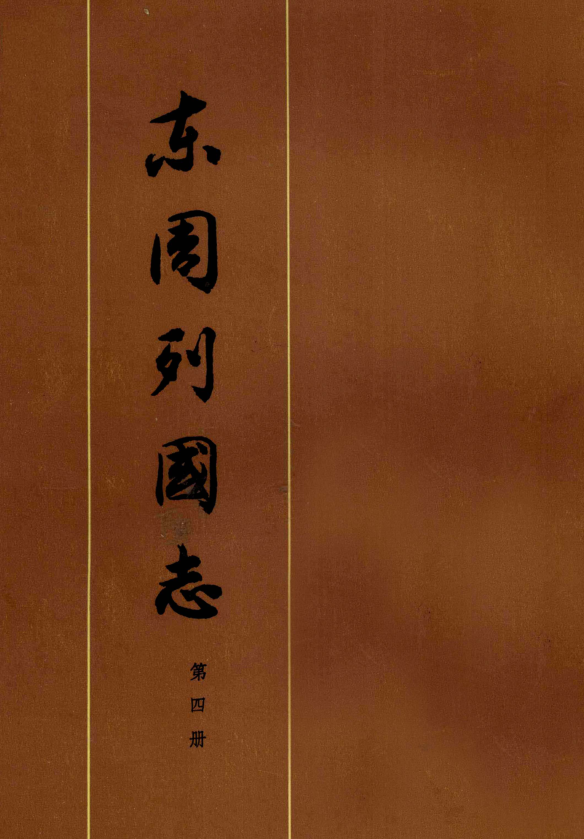 东周列國志
第四册